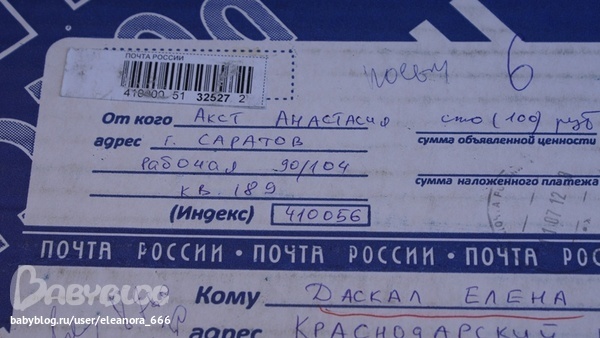 ПОЧТА РОССИИ
6
410000 51 32527 2
От кого Акст Анастасия
сто (100) руб
адрес г. Саратов
сумма объявленной ценности
Рабочая 90/104
кв. 189
сумма наложенного платежа
(Индекс) 410056
07 12
ПОЧТА РОССИИ • ПОЧТА РОССИИ • ПОЧТА РОСС
BABYBLOG
Кому Даскал Елена
babyblog.ru/user/eleanora_666
адрес Краснодарский